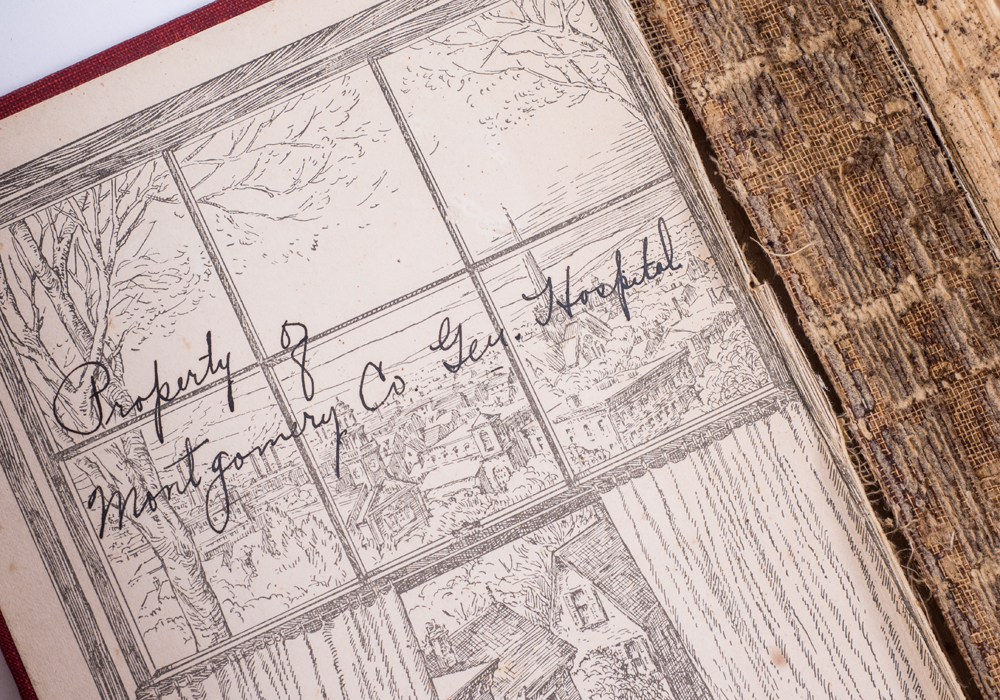 Property of
Montgomery Co. Gen. Hospital